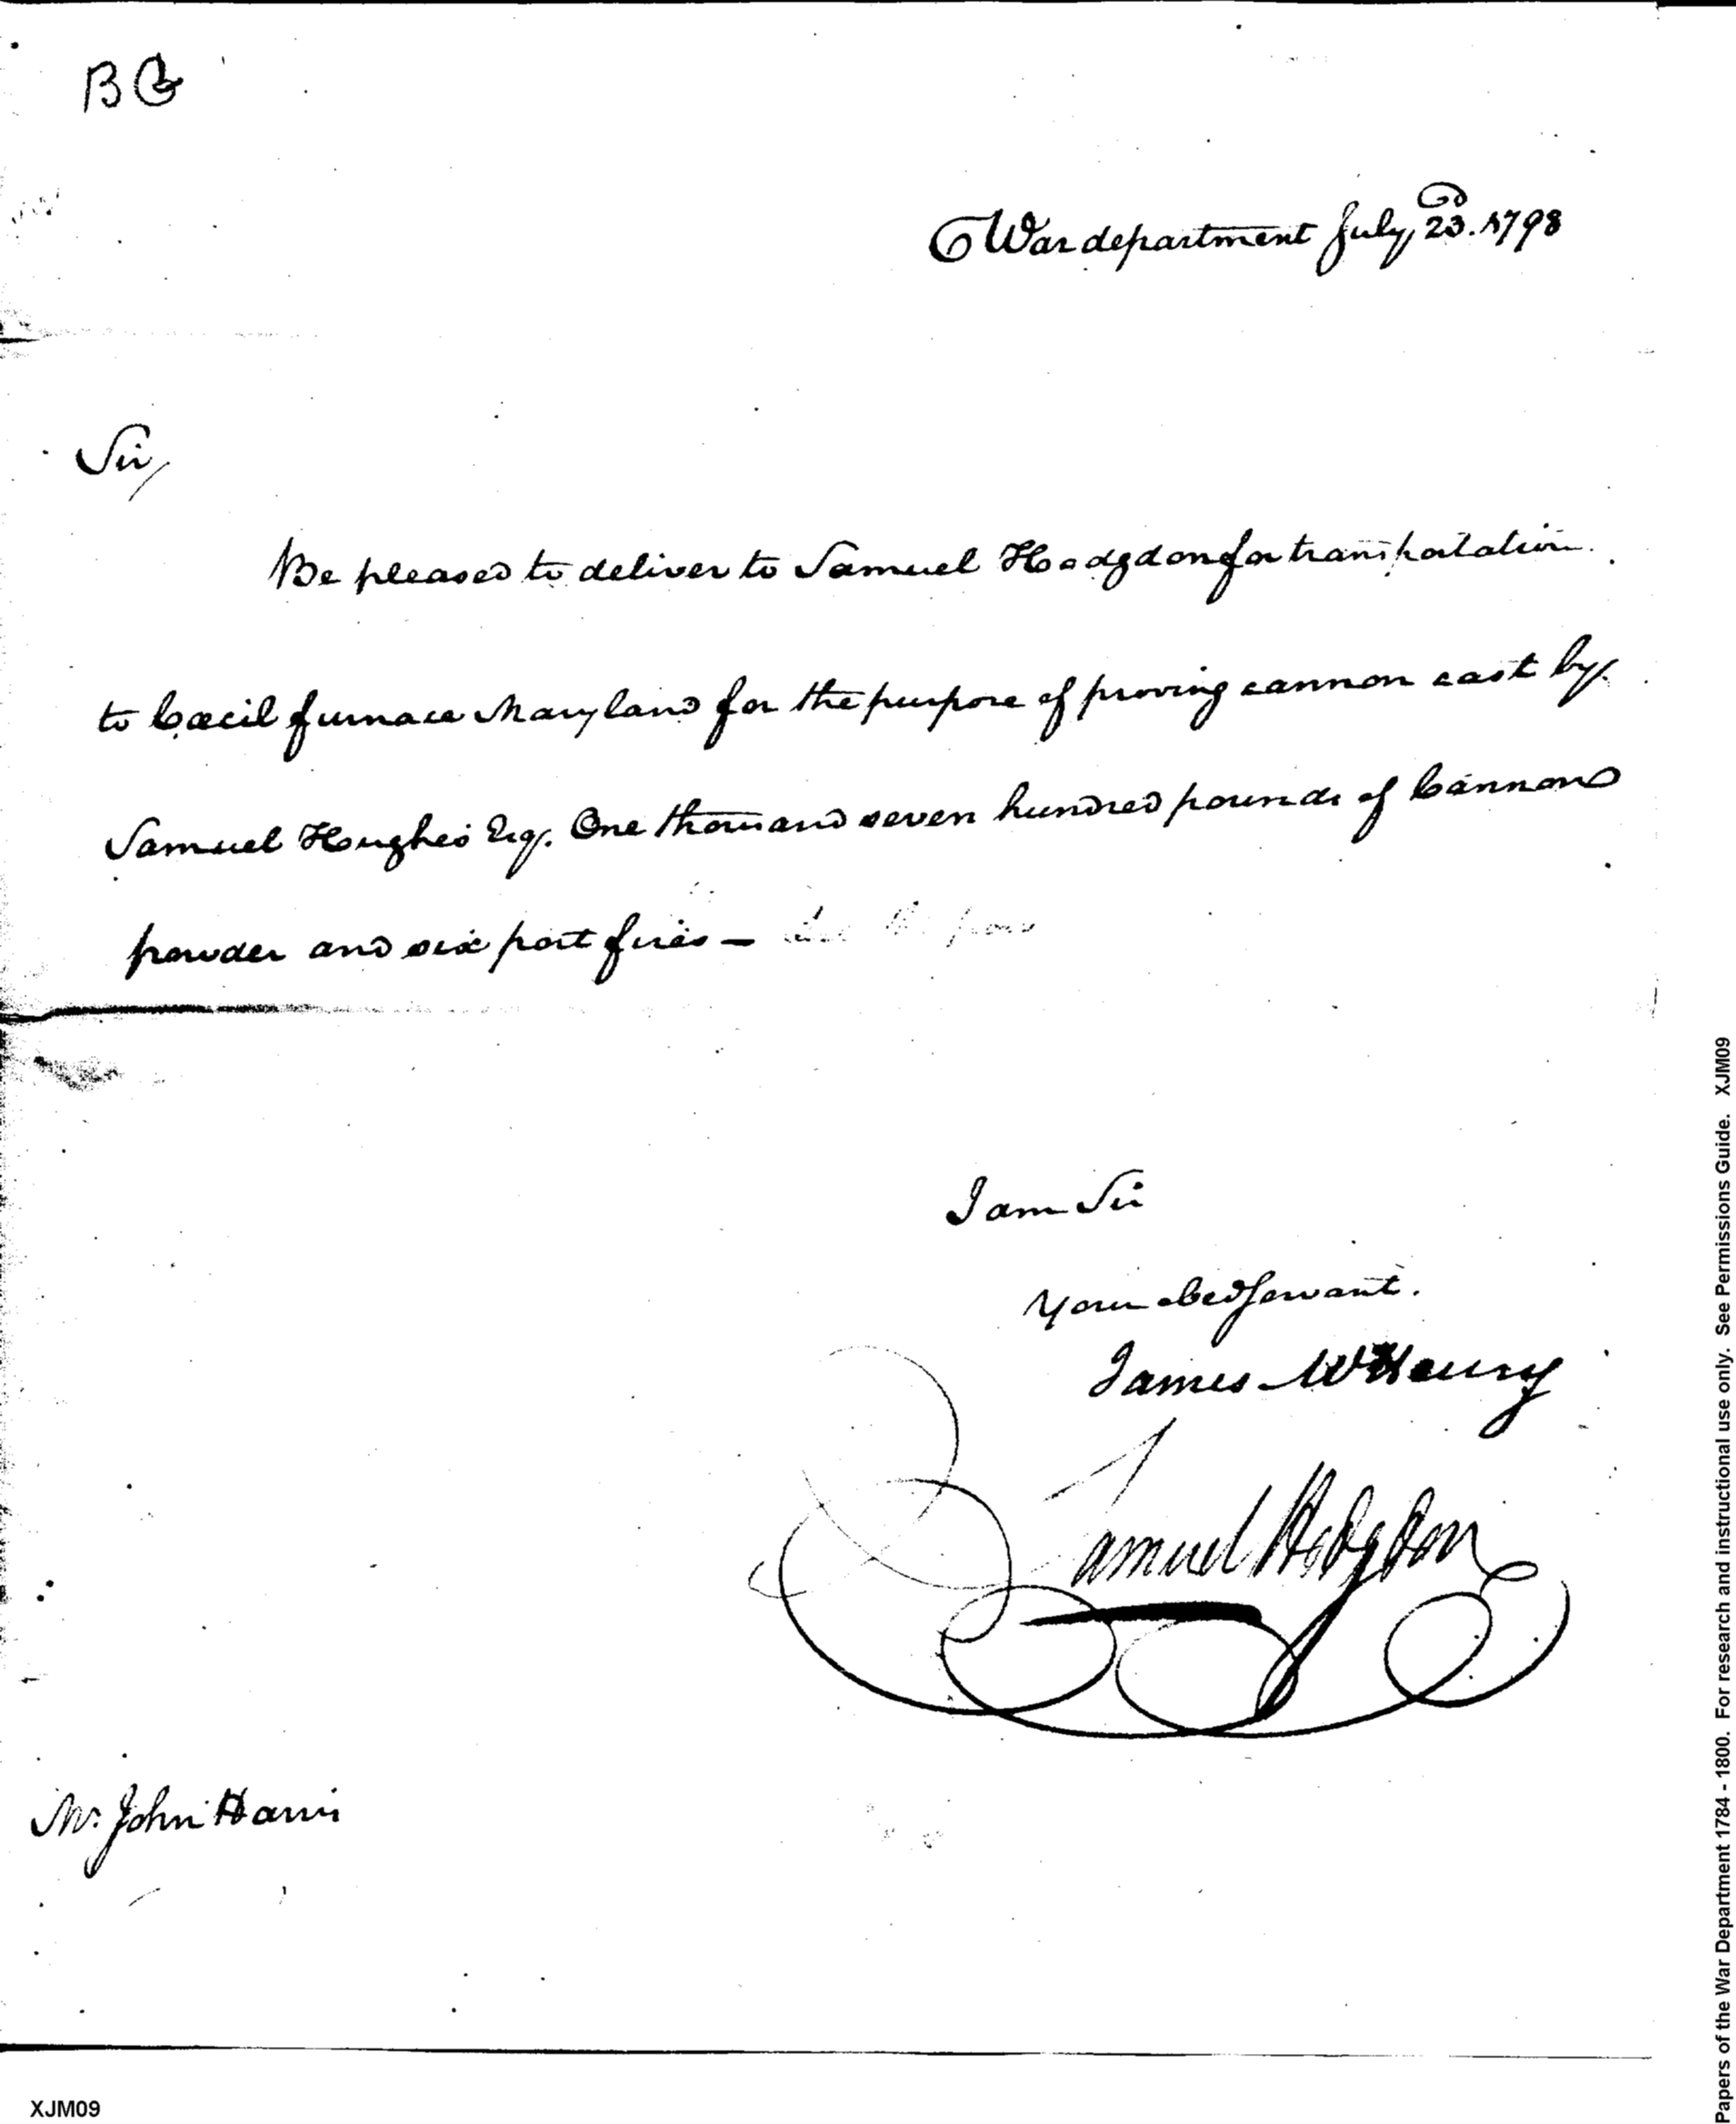 BG
War department July, 23d. 1798
Sir,
Be pleased to deliver to Samuel Hodgdon for transportation
to Cæcil furnace Maryland for the purpose of proving cannon cast by
Samuel Hughes Esq. One thousand seven hundred pounds of Cannon
powder and six port fires –
I am Sir
Your obed servant.
James McHenry
Samuel Hodgdon
Mr. John Harris
XJM09
Papers of the War Department 1784 - 1800. For research and instructional use only. See Permissions Guide. XJM09